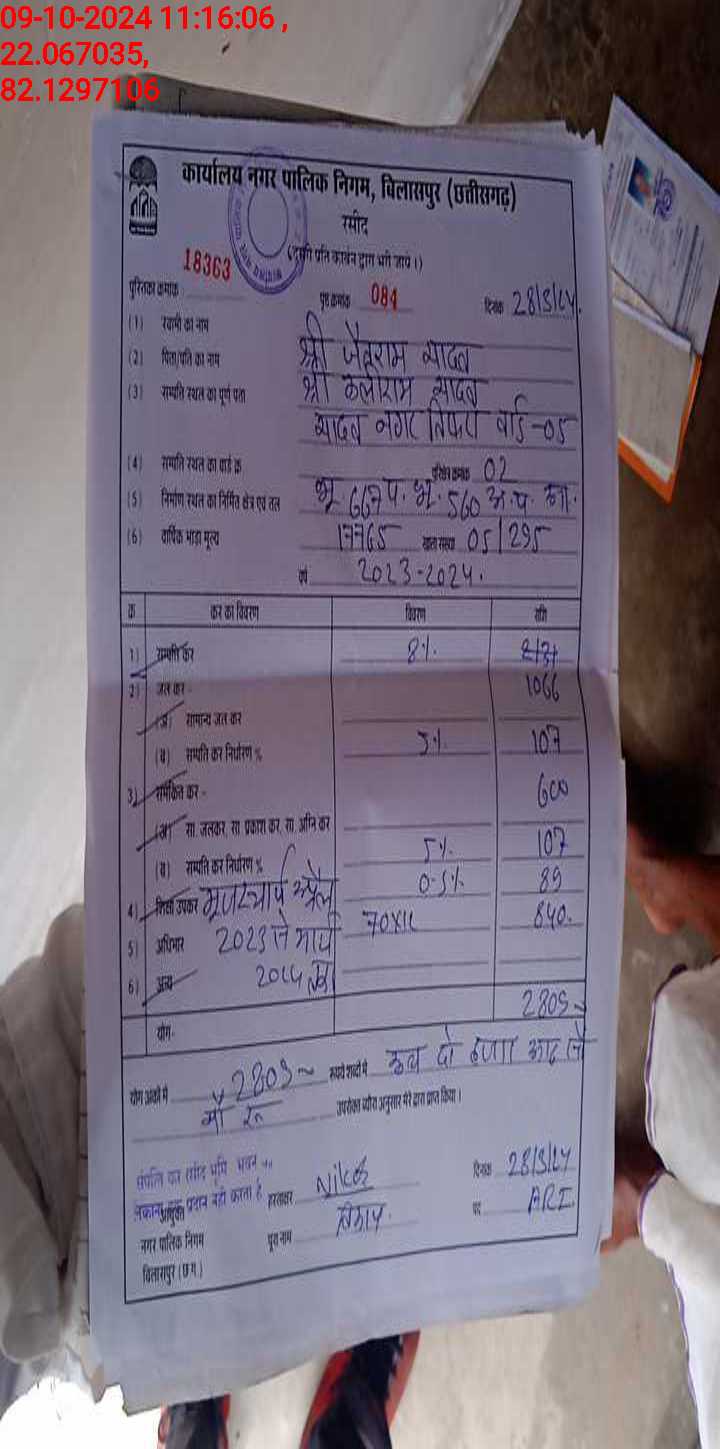 09-10-2024 11:16:06 ,
22.067035,
82.1297106
कार्यालय नगर पालिक निगम, बिलासपुर (छत्तीसगढ़)
रसीद
(दूसरी प्रति कार्बन द्वारा भरी जाये।)
पुस्तिका क्रमांक 18363 पृष्ठ क्रमांक 084 दिनांक 28/3/24
(1) स्वामी का नाम श्री जैतराम यादव
(2) पिता/पति का नाम श्री यादव
(3) सम्पत्ति स्थल का पूर्ण पता यादव नगर तिफरा वार्ड -05
(4) सम्पत्ति स्थल का वार्ड क्र 02
(5) निर्माण स्थल का निर्मित क्षेत्र एवं तल भू 667 प. भू. 560 अ. प.
(6) वार्षिक भाड़ा मूल्य 17765 खाता संख्या 05/295
वर्ष 2023-2024.
क्र कर का विवरण विवरण राशि
1) सम्पत्ति कर 8%
2) जल कर - 1066
(अ) सामान्य जल कर
(ब) सम्पत्ति कर निर्धारण % 5% 107
3) समेकित कर - 600
(अ) सा. जलकर, सा. प्रकाश कर, सा. अग्नि कर
(ब) सम्पत्ति कर निर्धारण % 5% 107
4) शिक्षा उपकर 0.5% 89
5) अधिभार 2023 से मार्च 70X12 840.
6) अन्य 2024 तक
योग- 2809
योग अंकों में 2809 रूपये शब्दों में दो हजार आठ सौ
नौ रू उपरोक्त ब्यौरा अनुसार मेरे द्वारा प्राप्त किया।
संपत्ति कर रसीद भूमि भवन
प्रदान नहीं करता है
हस्ताक्षर दिनांक 28/3/24
आयुक्त
नगर पालिक निगम पूरा नाम पद ARI
बिलासपुर (छ.ग.)